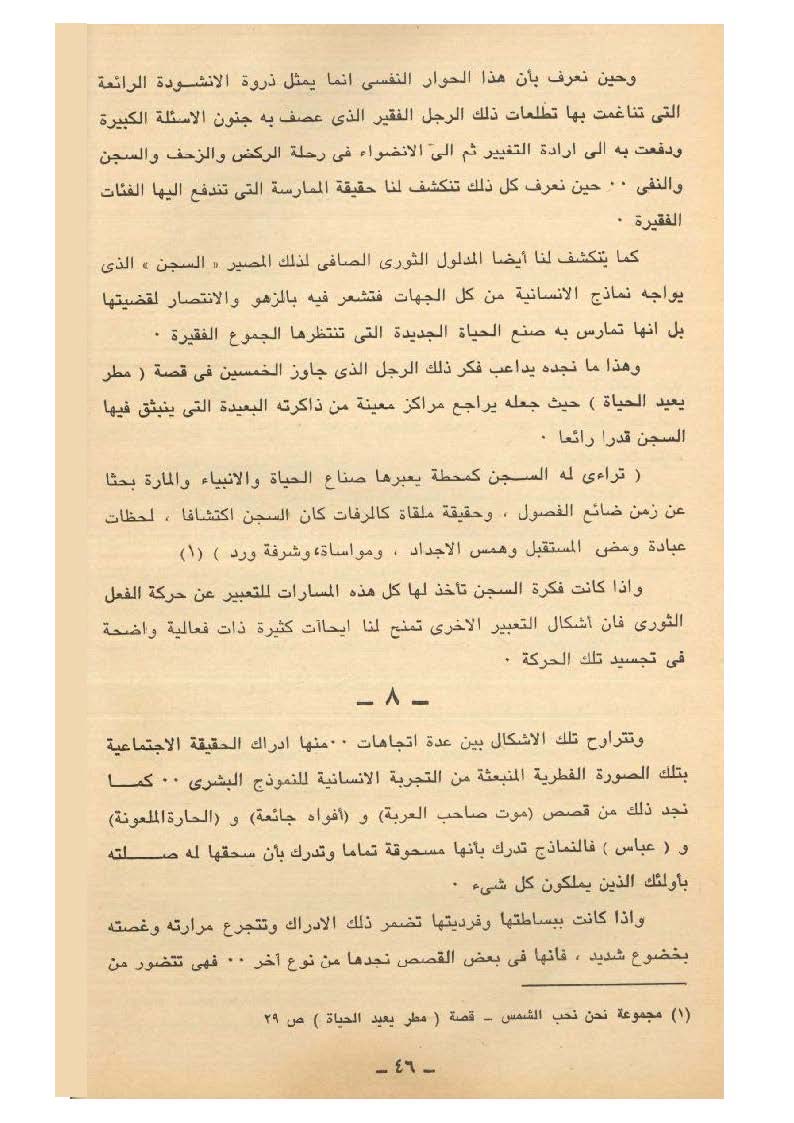 وحين نعرف بأن هذا الحوار النفسى انما يمثل ذروة الانشـودة الرائعة
التى تناغمت بها تطلعات ذلك الرجل الفقير الذى عصف به جنون الاسئلة الكبيرة
ودفعت به الى ارادة التغيير ثم الى الانضواء فى رحلة الركض والزحف والسجن
والنفى ٠٠ حين نعرف كل ذلك تنكشف لنا حقيقة الممارسة التى تندفع اليها الفئات
الفقيرة ٠
كما يتكشف لنا أيضا المدلول الثورى الصافى لذلك المصير « السجن » الذى
يواجه نماذج الانسانية من كل الجهات فتشعر فيه بالزهو والانتصار لقضيتها
بل انها تمارس به صنع الحياة الجديدة التى تنتظرها الجموع الفقيرة ٠
وهذا ما نجده يداعب فكر ذلك الرجل الذى جاوز الخمسين فى قصة ( مطر
يعيد الحياة ) حيث جعله يراجع مراكز معينة من ذاكرته البعيدة التى ينبثق فيها
السجن قدرا رائعا ٠
( تراءى له الســجن كمحطة يعبرها صناع الحياة والانبياء والمارة بحثا
عن زمن ضائع الفصول ، وحقيقة ملقاة كالرفات كان السجن اكتشافا ، لحظات
عبادة ومض المستقبل وهمس الاجداد ، ومواساة، وشرفة ورد ) (١)
واذا كانت فكرة السجن تأخذ لها كل هذه المسارات للتعبير عن حركة الفعل
الثورى فان أشكال التعبير الاخرى تمنح لنا ايحاآت كثيرة ذات فعالية واضحة
فى تجسيد تلك الحركة ٠
ـ ٨ ـ
وتتراوح تلك الاشكال بين عدة اتجاهات ٠٠ منها ادراك الحقيقة الاجتماعية
بتلك الصورة الفطرية المنبعثة من التجربة الانسانية للنموذج البشرى ٠٠ كمــا
نجد ذلك من قصص (موت صاحب العربة) و (أفواه جائعة) و (الحارة الملعونة)
و ( عباس ) فالنماذج تدرك بأنها مسحوقة تماما وتدرك بأن سحقها له صـــلته
بأولئك الذين يملكون كل شىء ٠
واذا كانت ببساطتها وفرديتها تضمر ذلك الادراك وتتجرع مرارته وغصته
بخضوع شديد ، فانها فى بعض القصص نجدها من نوع آخر ٠٠ فهى تتضور من
(١) مجموعة نحن نحب الشمس ـ قصة ( مطر يعيد الحياة ) ص ٢٩
ـ ٤٦ ـ